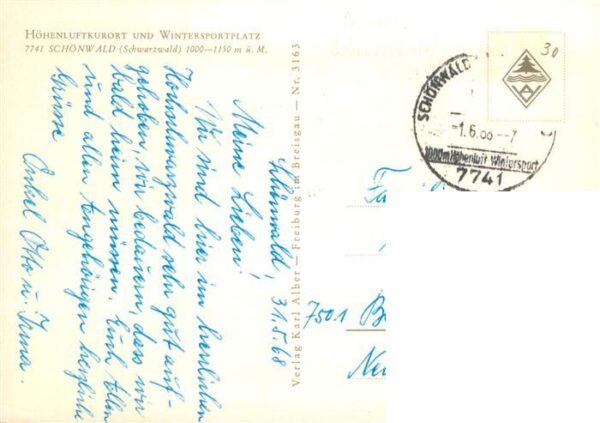 HÖHENLUFTKURORT UND WINTERSPORTPLATZ
7741 SCHÖNWALD (Schwarzwald) 1000—1150 m ü. M.
Schönwald, 31.5.68
Meine Lieben!
Wir sind hier im herrlichen
Hochschwarzwald sehr gut auf-
gehoben, wir bedauern, dass wir
bald heim müssen. Euch Allen
und allen Angehörigen herzliche
Grüsse
Onkel Otto u. Irma.
Verlag Karl Alber — Freiburg im Breisgau — Nr. 3163
30
A
SCHÖNWALD
-1.6.68--7
1000m Höhenluft Wintersport
7741
7501